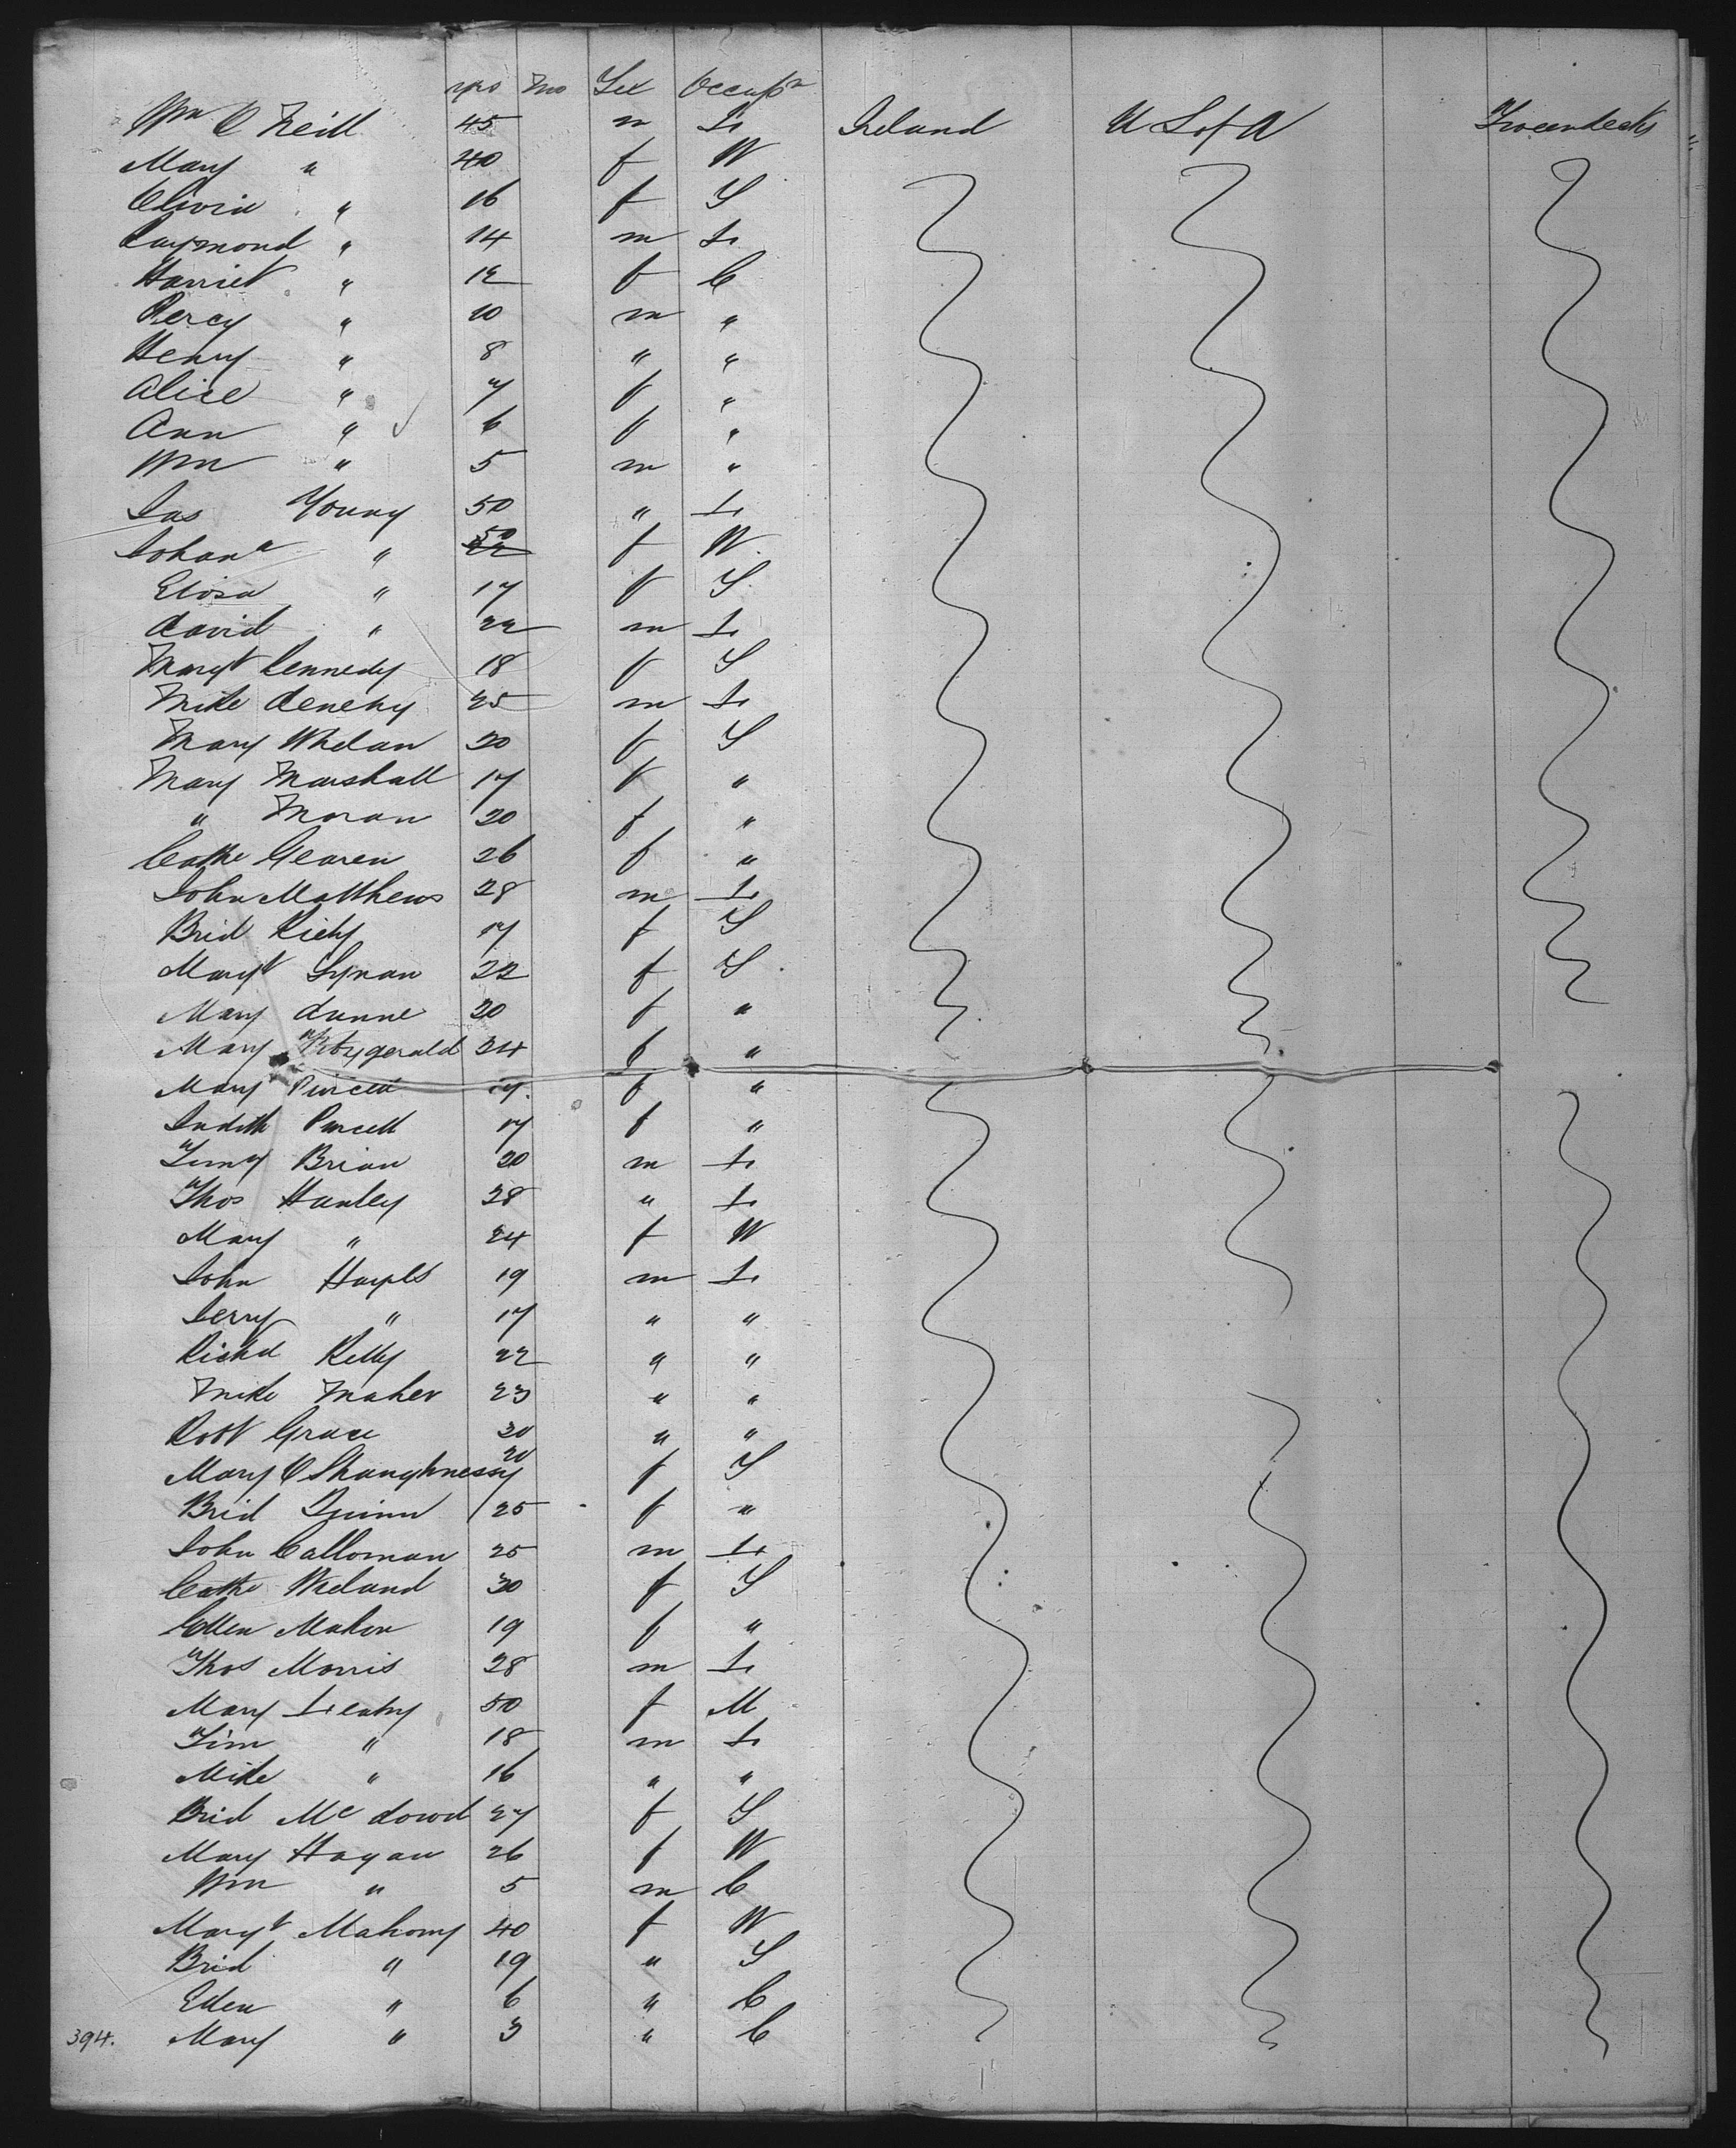 yrs mo Sex Occupn
Wm O Neill 45 m L Ireland U S of A Tweendecks
Mary " 40 f W
Olivia " 16 f S
Raymond " 14 m L
Harriet " 12 f C
Percy " 10 m "
Henry " 8 " "
Alice " 7 f "
Ann " 6 f "
Wm " 5 m "
Jas Young 50 " L
Johana " 50 f W
Eliza " 17 f S
David " 22 m L
Margt Kennedy 18 f S
Mike Denehy 25 m L
Mary Whelan 20 f S
Mary Marshall 17 f "
" Moran 20 f "
Cathe Gearen 26 f "
John Matthews 28 m L
Brid Richy 17 f S
Margt Lynan 22 f S
Mary Dunne 20 f "
Mary Fitzgerald 24 f "
Mary Purcell 17 f "
Judith Purcell 17 f "
Timy Brian 20 m L
Thos Hanley 28 " L
Mary " 24 f W
John Hayes 19 m L
Jerry " 17 " "
Richd Kelly 22 " "
Mike Maher 23 " "
Robt Grace 20 " "
Mary O Shaughnessy 20 f S
Brid Quinn 25 f "
John Calloman 25 m L
Cathe Wieland 30 f S
Ellen Mahon 19 f "
Thos Morris 28 m L
Mary Leahy 50 f M
Tim " 18 m L
Mike " 16 " "
Brid Mc Dowd 27 f S
Mary Hogan 26 f W
Wm " 5 m C
Margt Mahony 40 f W
Brid " 19 " S
Ellen " 6 " C
394. Mary " 3 " C